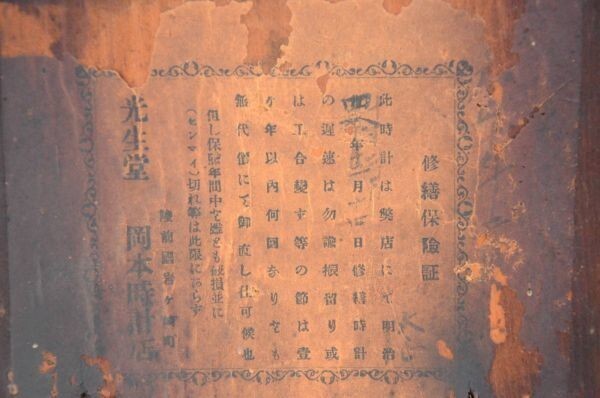 修繕保險証
此時計は弊店にて明治
年 月 日修繕時計
の遅速は勿論振留り或
は工合變す等の節は壹
ケ年以内何回參りても
無代價にて御直し仕可候也
但し保險年間中と雖とも破損並に
(センマイ)切れ等は此限にあらず
陸前國岩ヶ町
光生堂 岡本時計店